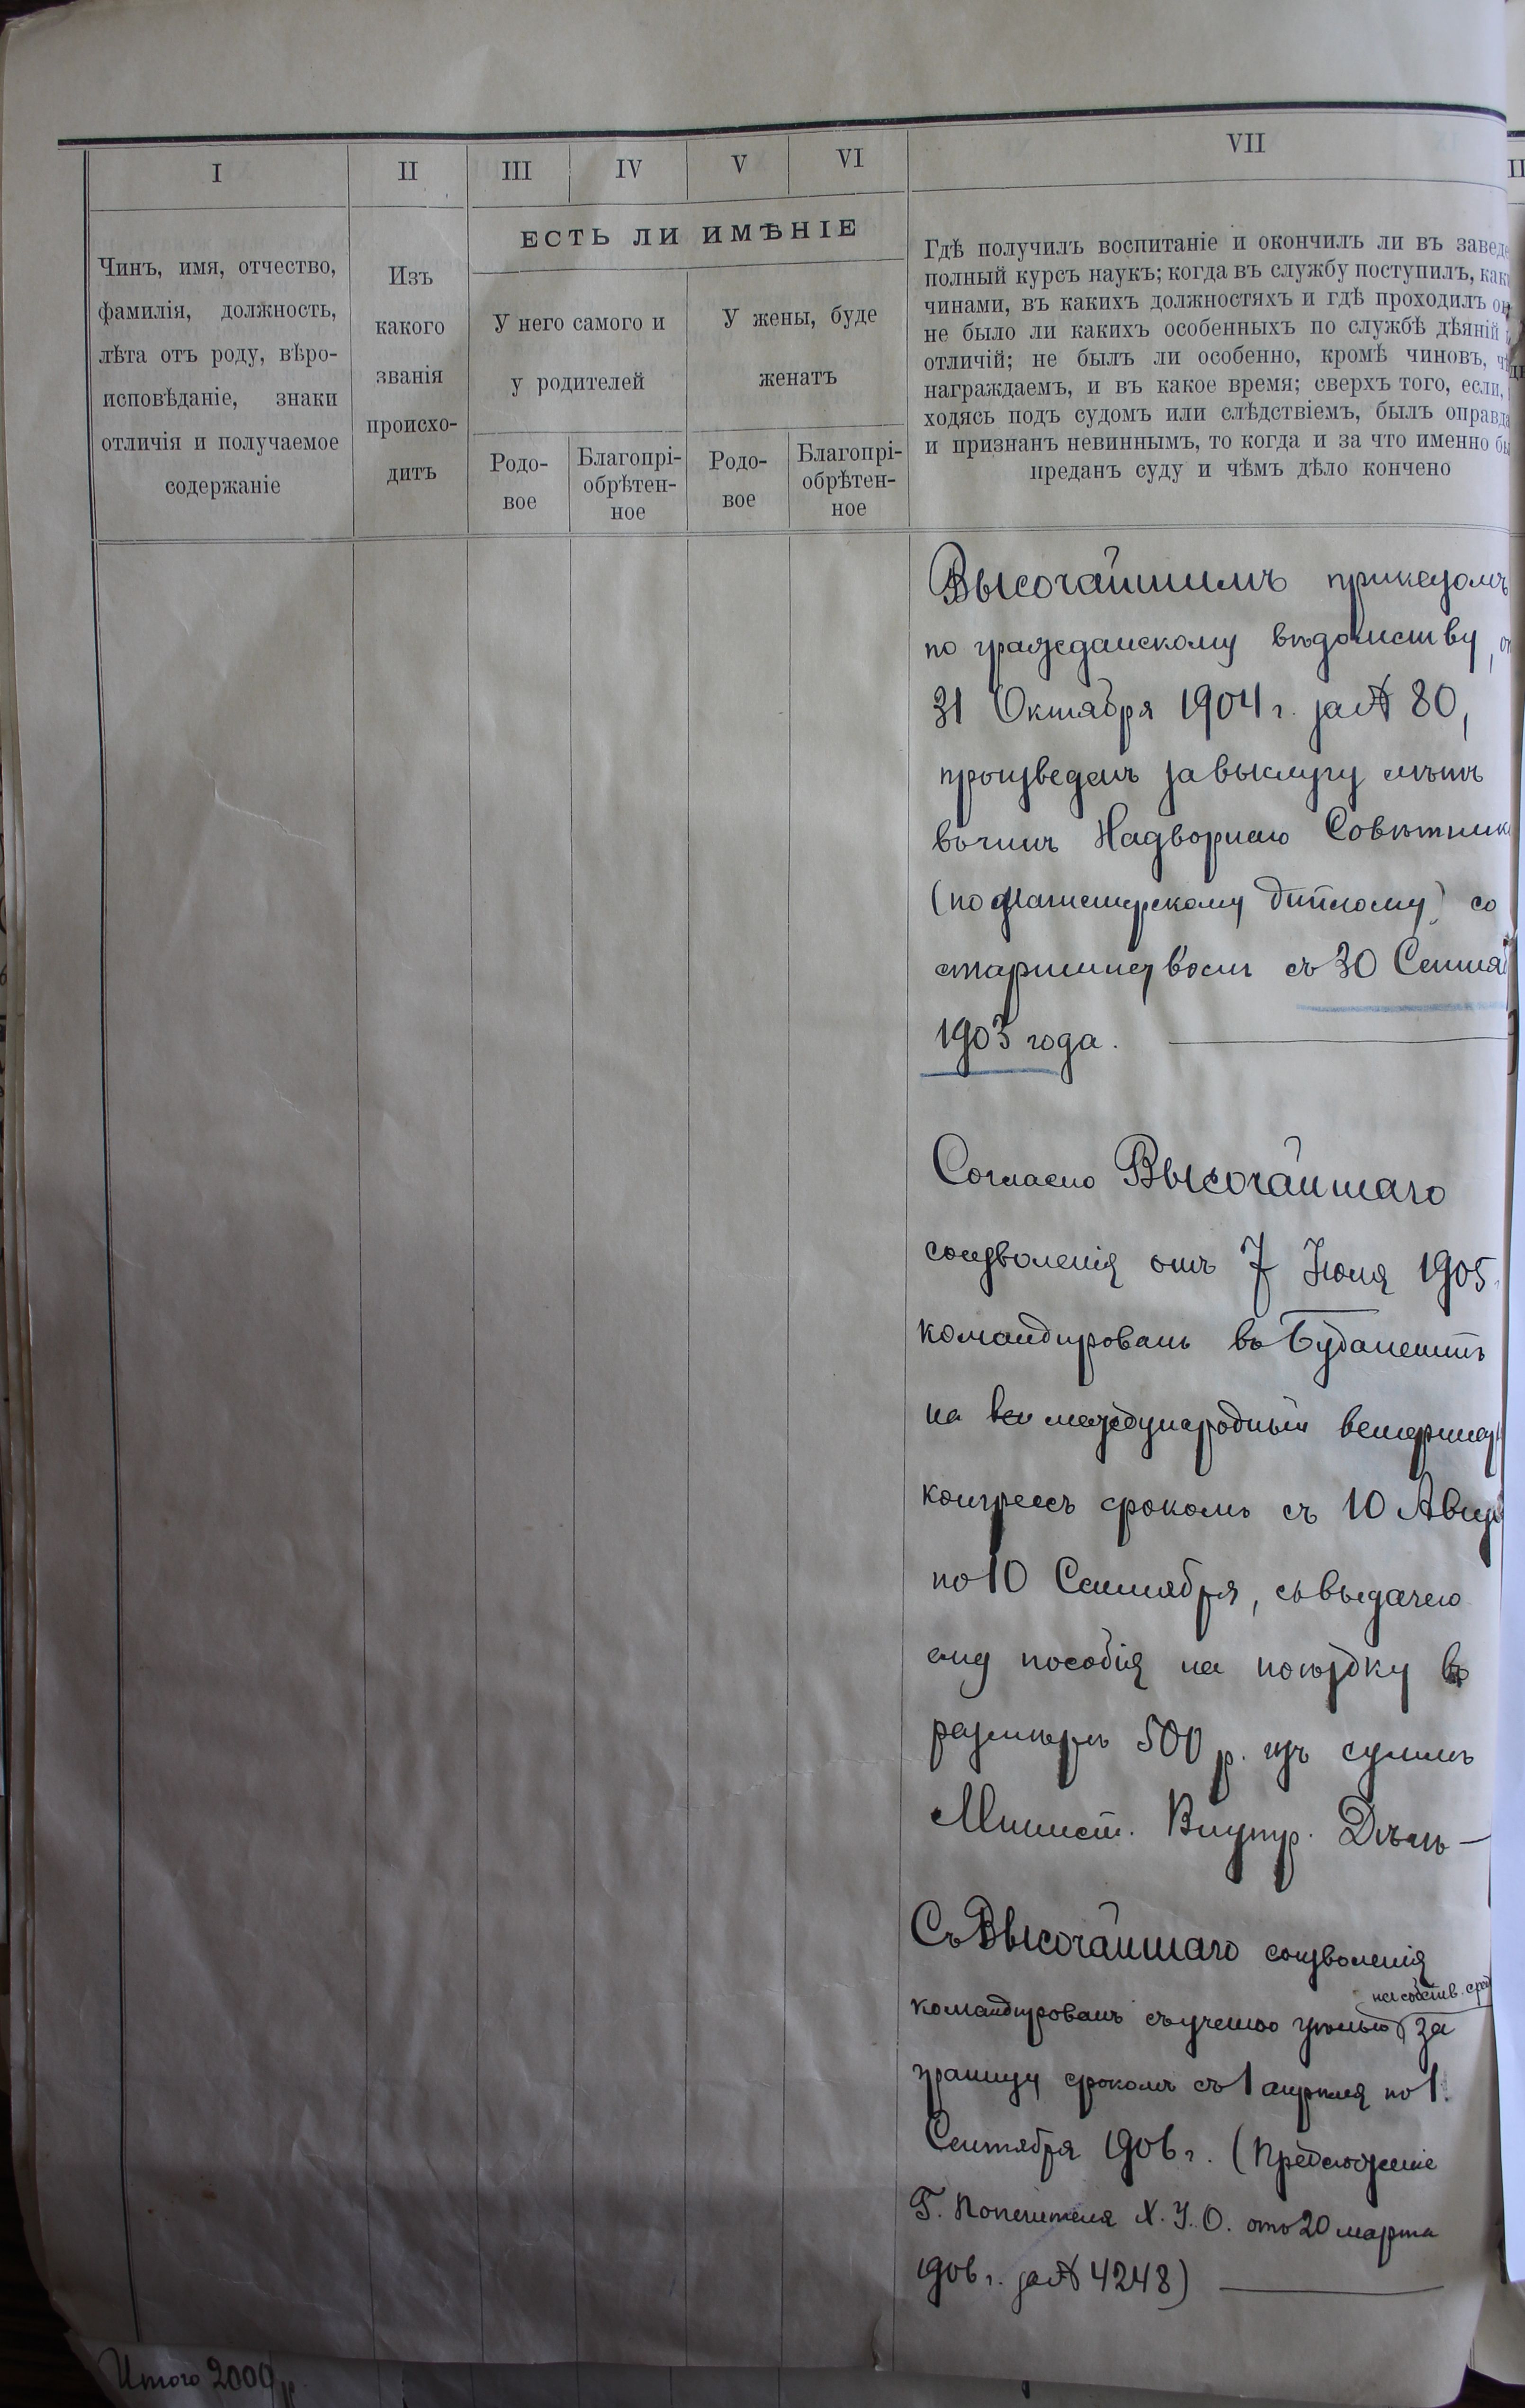 I
II
III
IV
V
VI
VII
ЕСТЬ ЛИ ИМѢНІЕ
Чинъ, имя, отчество,
фамилія, должность,
лѣта отъ роду, вѣро-
исповѣданіе, знаки
отличія и получаемое
содержаніе
Изъ
какого
званія
происхо-
дитъ
У него самого и
у родителей
У жены, буде
женатъ
Родо-
вое
Благопрі-
обрѣтен-
ное
Родо-
вое
Благопрі-
обрѣтен-
ное
Гдѣ получилъ воспитаніе и окончилъ ли въ завед
полный курсъ наукъ; когда въ службу поступилъ, как
чинами, въ какихъ должностяхъ и гдѣ проходилъ о
не было ли какихъ особенныхъ по службѣ дѣяній
отличій; не былъ ли особенно, кромѣ чиновъ, ч
награждаемъ, и въ какое время; сверхъ того, если,
ходясь подъ судомъ или слѣдствіемъ, былъ оправд
и признанъ невиннымъ, то когда и за что именно б
преданъ суду и чѣмъ дѣло кончено
Высочайшимъ приказомъ
по гражданскому вѣдомству,
31 Октября 1904 г. за № 80,
произведенъ за выслугу лѣтъ
въ чинъ Надворнаго Совѣтника
(по магистерскому диплому) со
старшинствомъ съ 30 Сентя
1903 года.
Согласно Высочайшаго
соизволенія отъ 7 Іюля 1905
командированъ въ Будапештъ
на международный ветерина
конгрессъ срокомъ съ 10 Авгу
по 10 Сентября, съ выдачею
ему пособія на поѣздку въ
размѣрѣ 500 р. изъ суммъ
Минист. Внутр. Дѣлъ —
Съ Высочайшаго соизволенія
на собств. сред
командированъ съ ученою цѣлью за
границу срокомъ съ 1 апрѣля по 1
Сентября 1906 г. (Предложеніе
Г. Попечителя Х. У. О. отъ 20 марта
1906 г. за № 4248)
Итого 2000 р